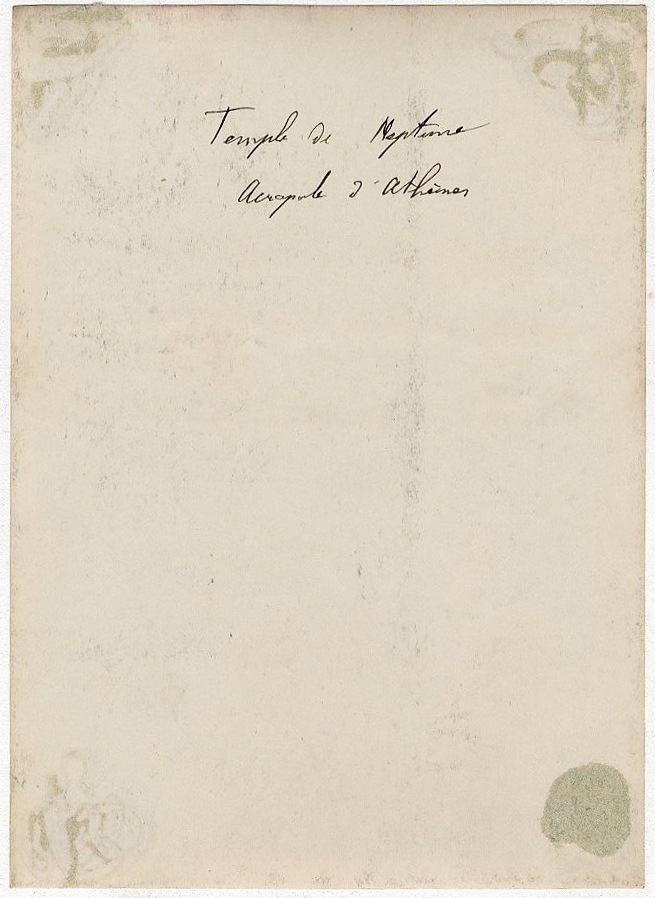 Temple de Neptune
Acropole d'Athènes